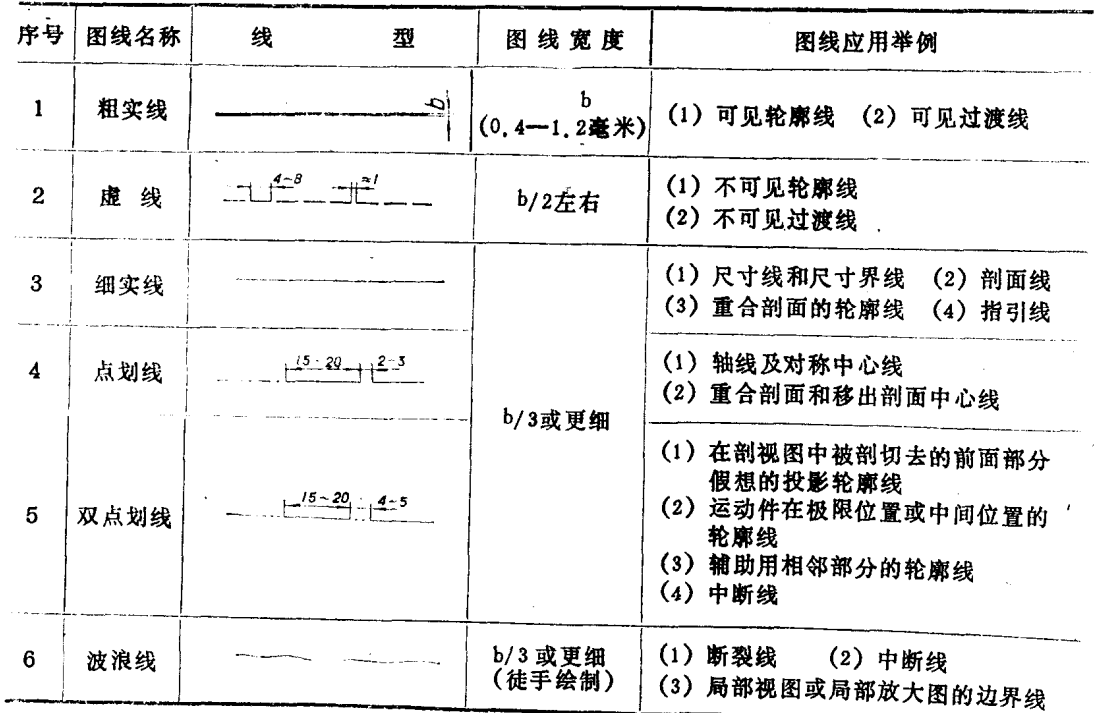 序号 图线名称 线 型 图线宽度 图线应用举例
1 粗实线 b b (0.4—1.2毫米) (1) 可见轮廓线 (2) 可见过渡线
2 虚 线 4~8 ≈1 b/2左右 (1) 不可见轮廓线
(2) 不可见过渡线
3 细实线 (1) 尺寸线和尺寸界线 (2) 剖面线
(3) 重合剖面的轮廓线 (4) 指引线
4 点划线 15~20 2~3 (1) 轴线及对称中心线
(2) 重合剖面和移出剖面中心线
b/3或更细
5 双点划线 15~20 4~5 (1) 在剖视图中被剖切去的前面部分
假想的投影轮廓线
(2) 运动件在极限位置或中间位置的
轮廓线
(3) 辅助用相邻部分的轮廓线
(4) 中断线
6 波浪线 b/3或更细 (1) 断裂线 (2) 中断线
(徒手绘制) (3) 局部视图或局部放大图的边界线